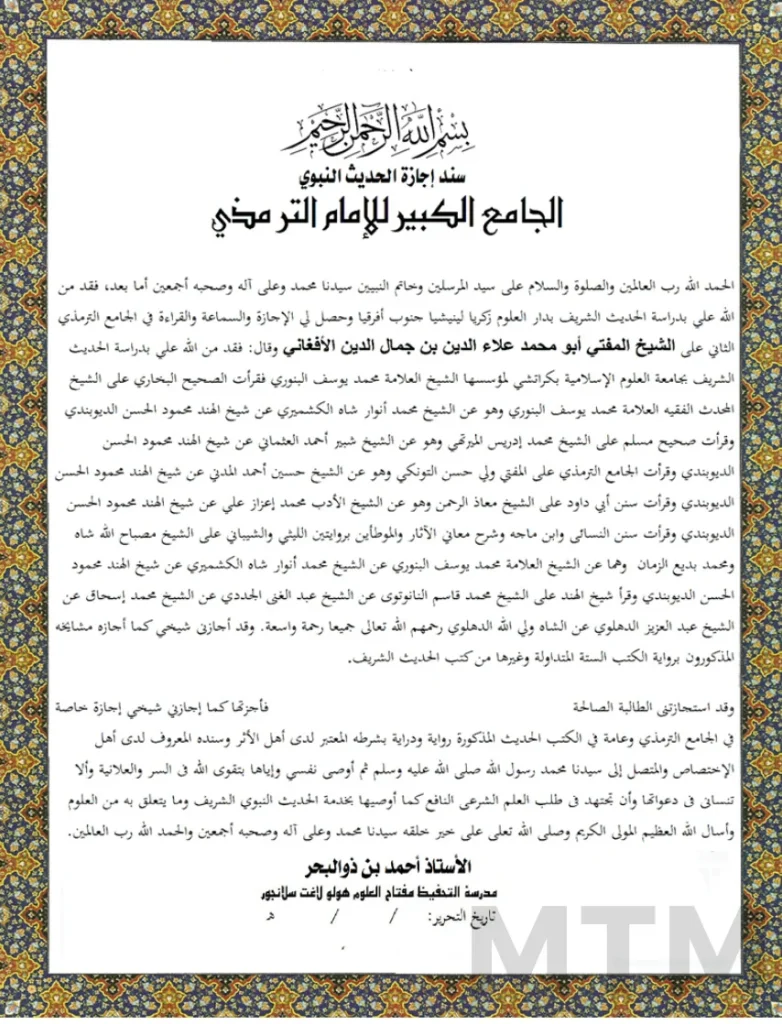 بسم الله الرحمن الرحيم
سند إجازة الحديث النبوي
الجامع الكبير للإمام الترمذي
الحمد الله رب العالمين والصلوة والسلام على سيد المرسلين وخاتم النبيين سيدنا محمد وعلى آله وصحبه أجمعين أما بعد، فقد من
الله علي بدراسة الحديث الشريف بدار العلوم زكريا لينيشيا جنوب أفرقيا وحصل لي الإجازة والسماعة والقراءة في الجامع الترمذي
الثاني على الشيخ المفتي أبو محمد علاء الدين بن جمال الدين الأفغاني وقال: فقد من الله علي بدراسة الحديث
الشريف بجامعة العلوم الإسلامية بكراتشي لمؤسسها الشيخ العلامة محمد يوسف البنوري فقرأت الصحيح البخاري على الشيخ
المحدث الفقيه العلامة محمد يوسف البنوري وهو عن الشيخ محمد أنوار شاه الكشميري عن شيخ الهند محمود الحسن الديوبندي
وقرأت صحيح مسلم على الشيخ محمد إدريس الميرتهي وهو عن الشيخ شبير أحمد العثماني عن شيخ الهند محمود الحسن
الديوبندي وقرأت الجامع الترمذي على المفتي ولي حسن التونكي وهو عن الشيخ حسين أحمد المدني عن شيخ الهند محمود الحسن
الديوبندي وقرأت سنن أبي داود على الشيخ معاذ الرحمن وهو عن الشيخ الأدب محمد إعزاز علي عن شيخ الهند محمود الحسن
الديوبندي وقرأت سنن النسائى وابن ماجه وشرح معاني الآثار والموطأين بروايتين الليثي والشيباني على الشيخ مصباح الله شاه
ومحمد بديع الزمان وهما عن الشيخ العلامة محمد يوسف البنوري عن الشيخ محمد أنوار شاه الكشميري عن شيخ الهند محمود
الحسن الديوبندي وقرأ شيخ الهند على الشيخ محمد قاسم النانوتوى عن الشيخ عبد الغنى المجددي عن الشيخ محمد إسحاق عن
الشيخ عبد العزيز الدهلوي عن الشاه ولي الله الدهلوي رحمهم الله تعالى جميعا رحمة واسعة. وقد أجازنى شيخي كما أجازه مشايخه
المذكورون برواية الكتب الستة المتداولة وغيرها من كتب الحديث الشريف.
وقد استجازتنى الطالبة الصالحة فأجزتها كما إجازني شيخي إجازة خاصة
في الجامع الترمذي وعامة في الكتب الحديث المذكورة رواية ودراية بشرطه المعتبر لدى أهل الأثر وسنده المعروف لدى أهل
الإختصاص والمتصل إلى سيدنا محمد رسول الله صلى الله عليه وسلم ثم أوصى نفسي وإياها بتقوى الله فى السر والعلانية وألا
تنسانى فى دعواتها وأن تجتهد فى طلب العلم الشرعى النافع كما أوصيها بخدمة الحديث النبوي الشريف وما يتعلق به من العلوم
وأسال الله العظيم المولى الكريم وصلى الله تعلى على خير خلقه سيدنا محمد وعلى آله وصحبه أجمعين والحمد الله رب العالمين.
الأستاذ أحمد بن ذوالبحر
مدرسة التحفيظ مفتاح العلوم هولو لاغت سلانجور
تاريخ التحرير: / / ه
MTM